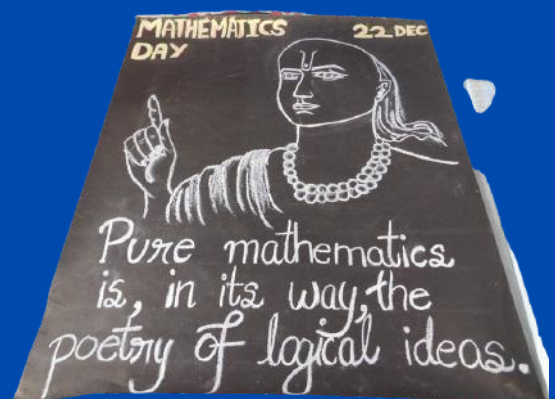 MATHEMATICS 22 DEC
DAY
Pure mathematics
is, in its way, the
poetry of logical ideas.